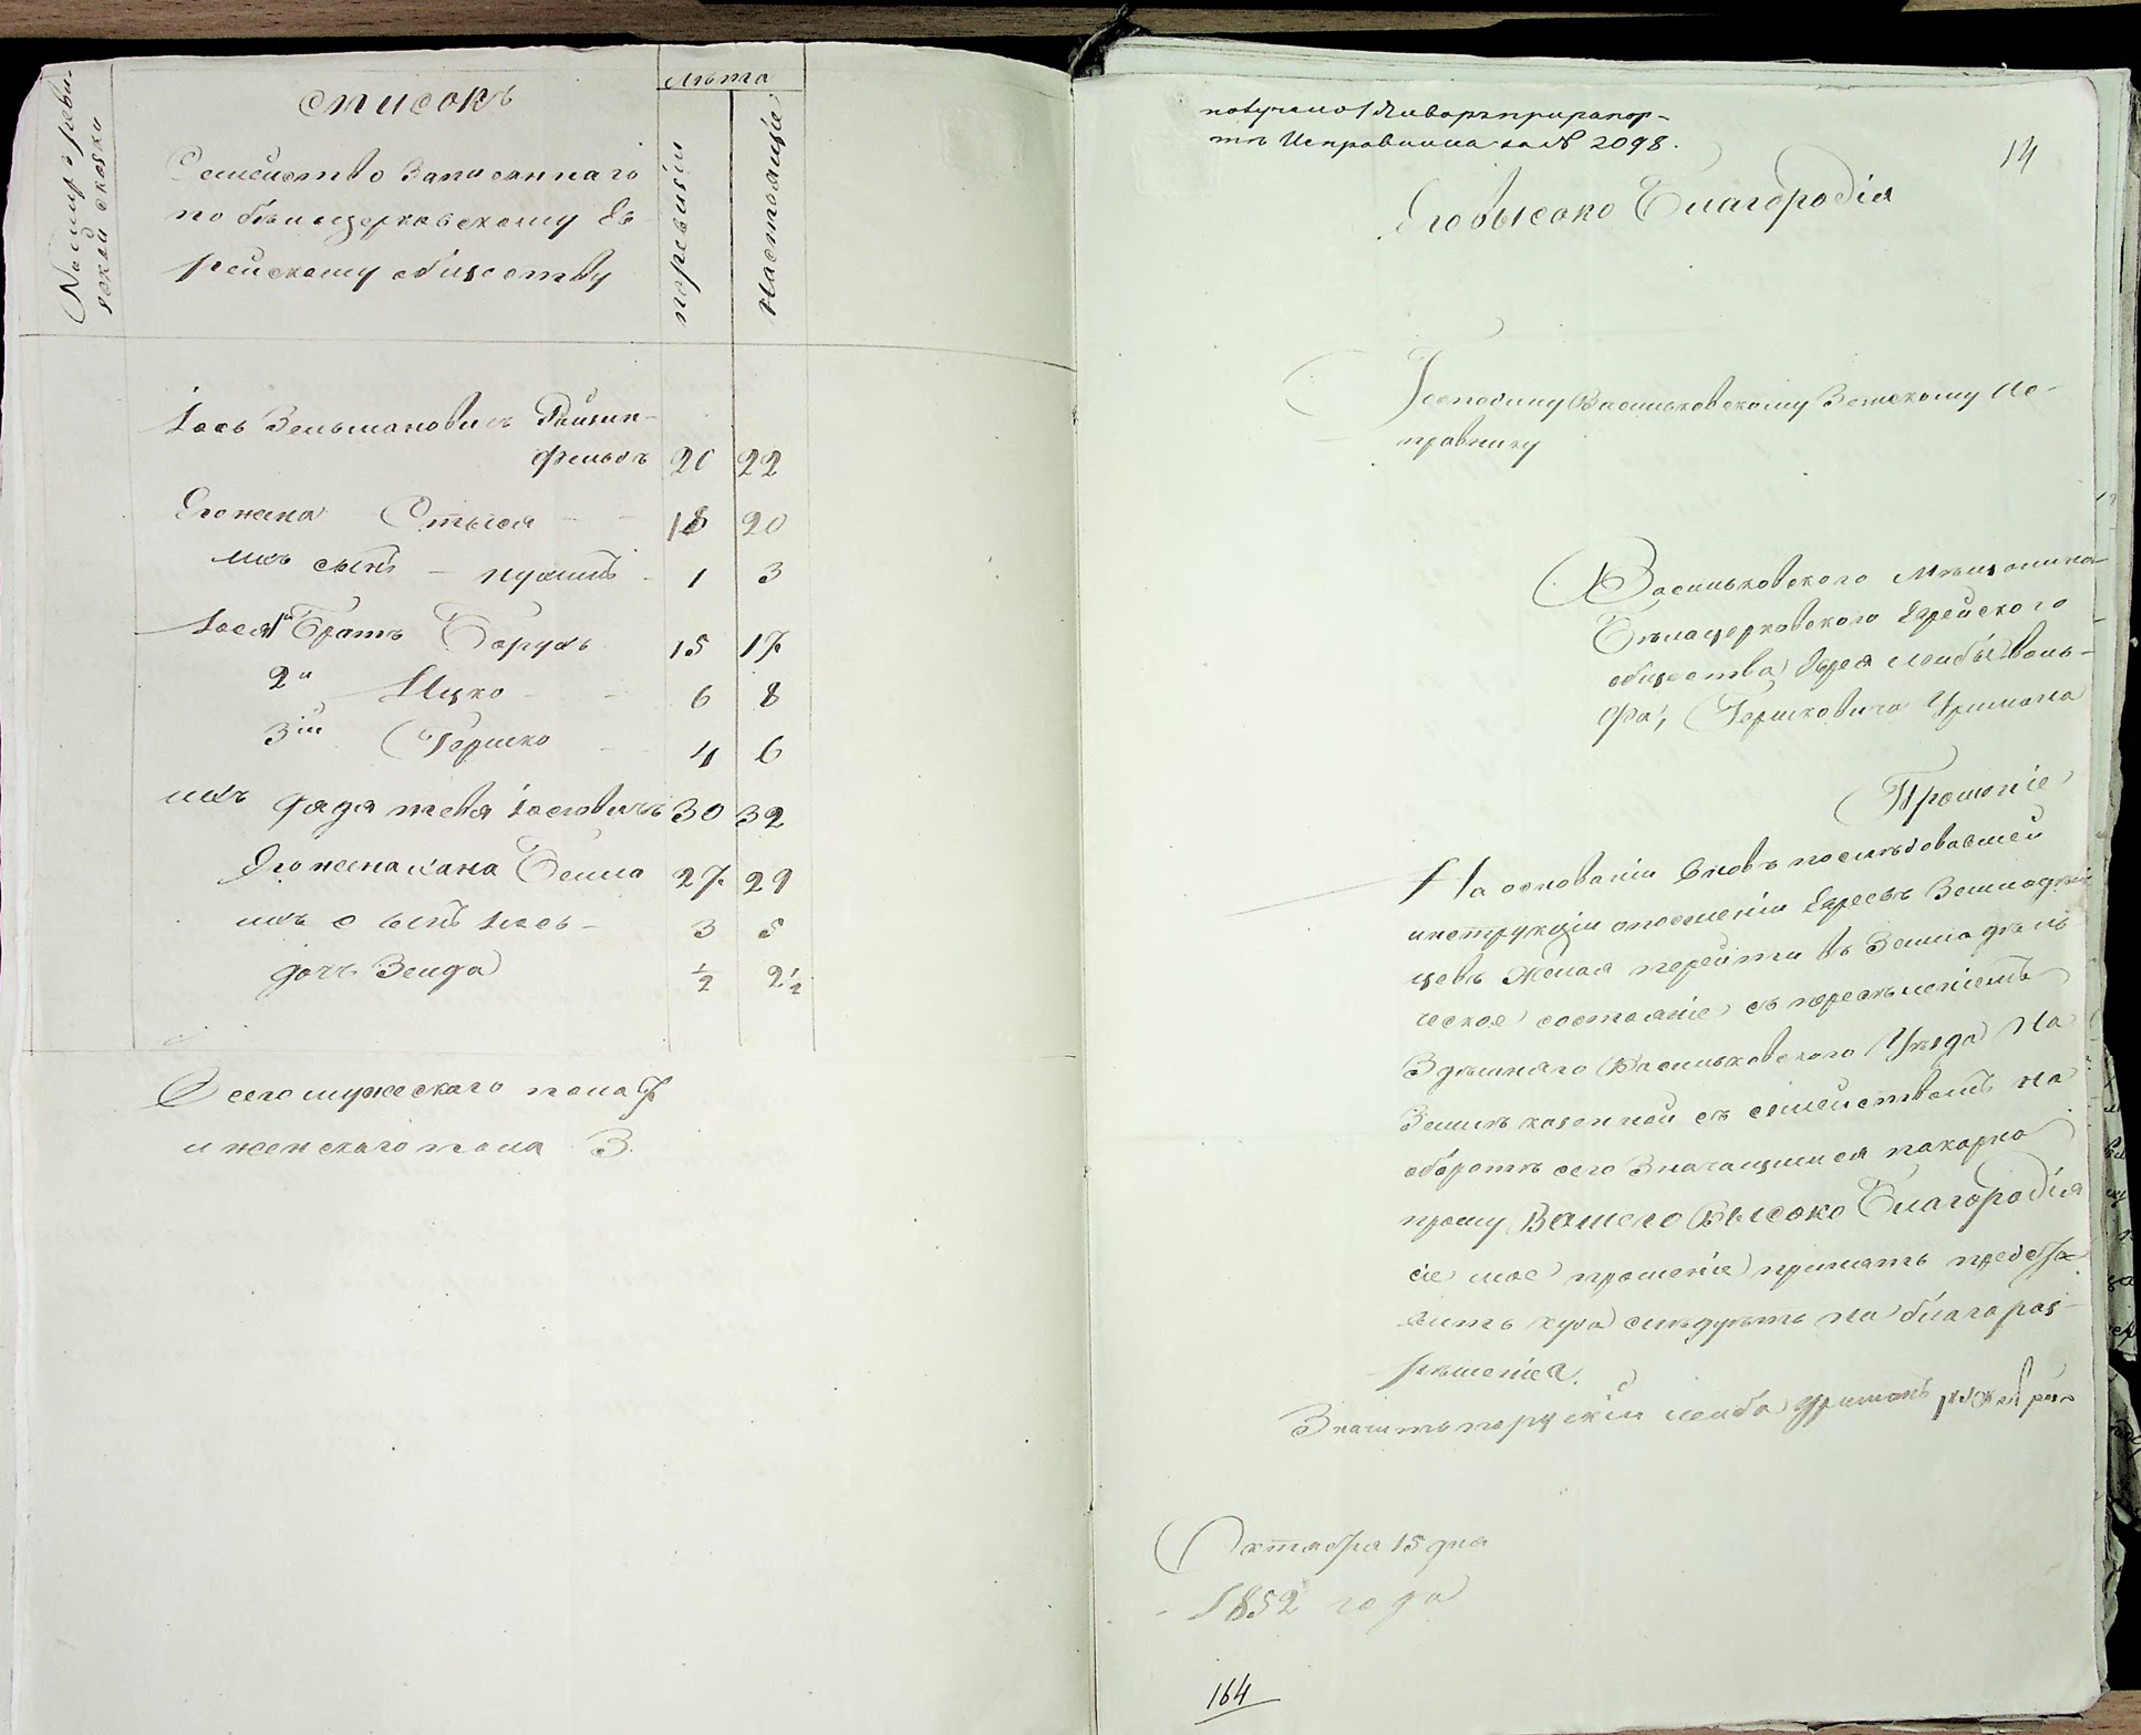 Номир з реви-
зской сказки
списокъ
Семейство Записаннаго
по белицерковскому Ев
рейскому общеотву
Лѣта
по ревизіи
Настоящіе
Іось Зельмановичъ
фельдъ 20 22
Его жена Стыся 18 20
ихъ сынъ 1 3
Іося 1й Братъ Борухъ 15 17
2й Ицко 6 8
3ій Гершко 4 6
ихъ дядя тевя Іосіовичъ 30 32
Его жена хана Бейла 27 29
ихъ сынъ Іось 3 5
дочъ Зельда ½ 2½
Всего мужескаго пола 7
и женскаго пола 3.
получено 1 Январ при рапор-
тѣ Исправника за № 2098.
14
Его высоко Благородія
Господину Васильковскому Земскому Ис-
правнику
Васильковского Мѣщанина
Бѣлацерковского Еврейского
общества Еврея Лейбы Воль-
фа, Гершковича Уримана
Прошеніе
На основаніи вновъ послѣдовавшей
инструкціи о поселеніи Евреевъ Земледѣл
цевъ желая перейти въ Земледѣль
ческое состояніе съ переселеніемъ
Здѣшняго Васильковского Уезда На
Земли казенной съ семействомъ на
оборотѣ сего Значащимися покорно
прошу Вашего Высоко Благородія
сіе мое прошеніе принять предста
вить куда следуетъ на благораз-
решеніе.
Значитъ поруский лейба Уриманъ
Октября 15 дня
1852 года
164